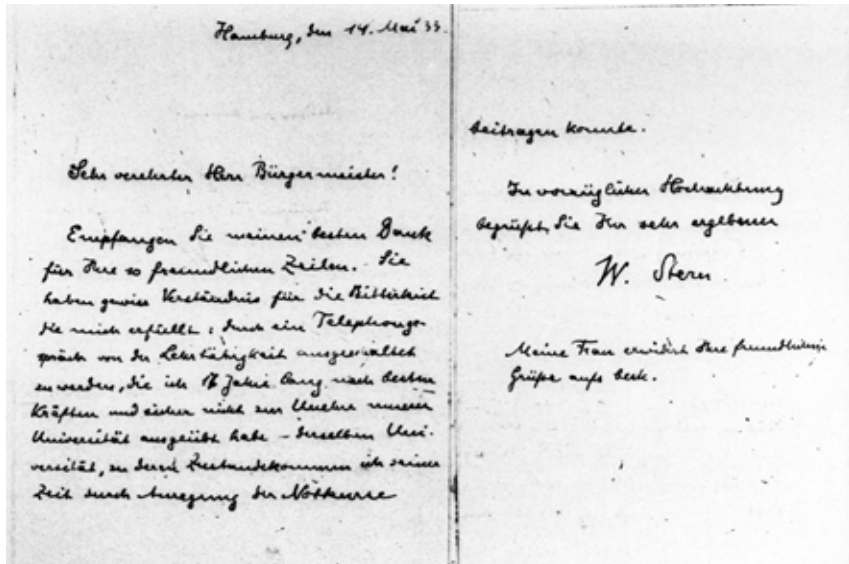 Hamburg, den 14. Mai 33.
Sehr verehrter Herr Bürgermeister!
Empfangen Sie meinen besten Dank
für Ihre so freundlichen Zeilen. Sie
haben gewiss Verständnis für die Bitterkeit
die mich erfüllt: durch ein Telephonge-
spräch von der Lehrtätigkeit ausgeschaltet
zu werden, die ich 17 Jahre lang nach besten
Kräften und sicher nicht zur Unehre unserer
Universität ausgeübt habe – derselben Uni-
versität, zu deren Zustandekommen ich seiner
Zeit durch Anregung der Notkurse
beitragen konnte.
In vorzüglicher Hochachtung
begrüsst Sie Ihr sehr ergebener
W. Stern
Meine Frau erwidert Ihre freundlichen
Grüße aufs beste.